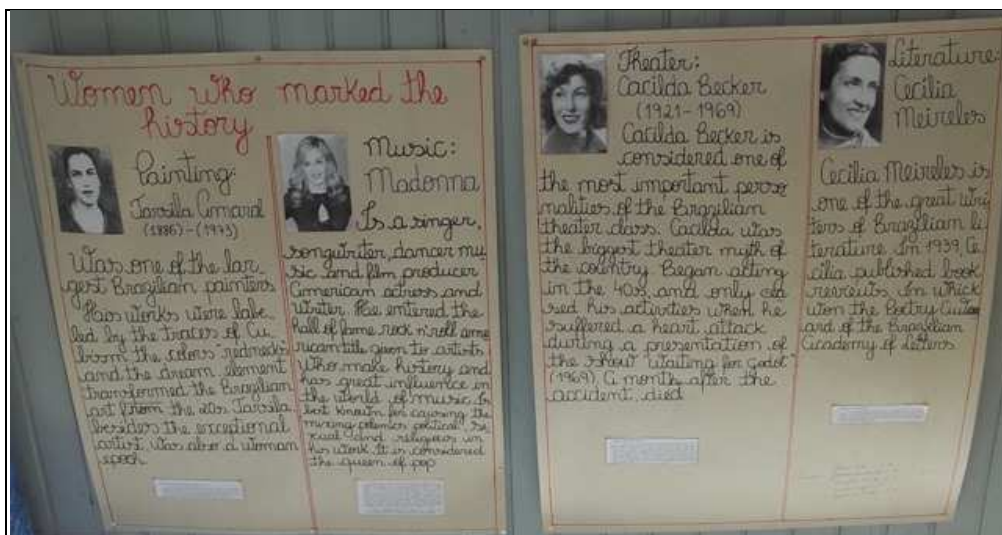 Women who marked the
history
Painting:
Tarsilla Amaral
(1886)-(1973)
Was one of the lar_
gest Brazilian painters
His works were labe_
led by the traces of Cu_
bism the colors "rednecks
and the dream element
transformed the Brazilian
art from the 20s Tarsila,
besides the exceptional
artist, was also a woman
epoch
Music:
Madonna
Is a singer,
songwriter, dancer mu
sic and film producer
American actress and
Writer He entered the
hall of fame rock n'roll ame
rican title given to artists
who make history and
has great influence in
the world of music Is
best known for
mixing polemics political se
xual and religious in
his work It is considered
the queen of pop
Theater:
Cacilda Becker
(1921-1969)
Cacilda Becker is
considered one of
the most important perso
nalities of the Brazilian
theater class. Cacilda was
the biggest theater myth of
the country Began acting
in the 40s, and only cea
sed his activities when he
suffered a heart attack
during a presentation of
the show "Waiting for Godot"
(1969) A month after the
accident, died
Literature:
Cecilia
Meireles
Cecilia Meireles is
one of the great wri
ters of Brazilian li
terature In 1939, Ce
cilia published book
in which
won the Poetry
of the Brazilian
Academy of Letters